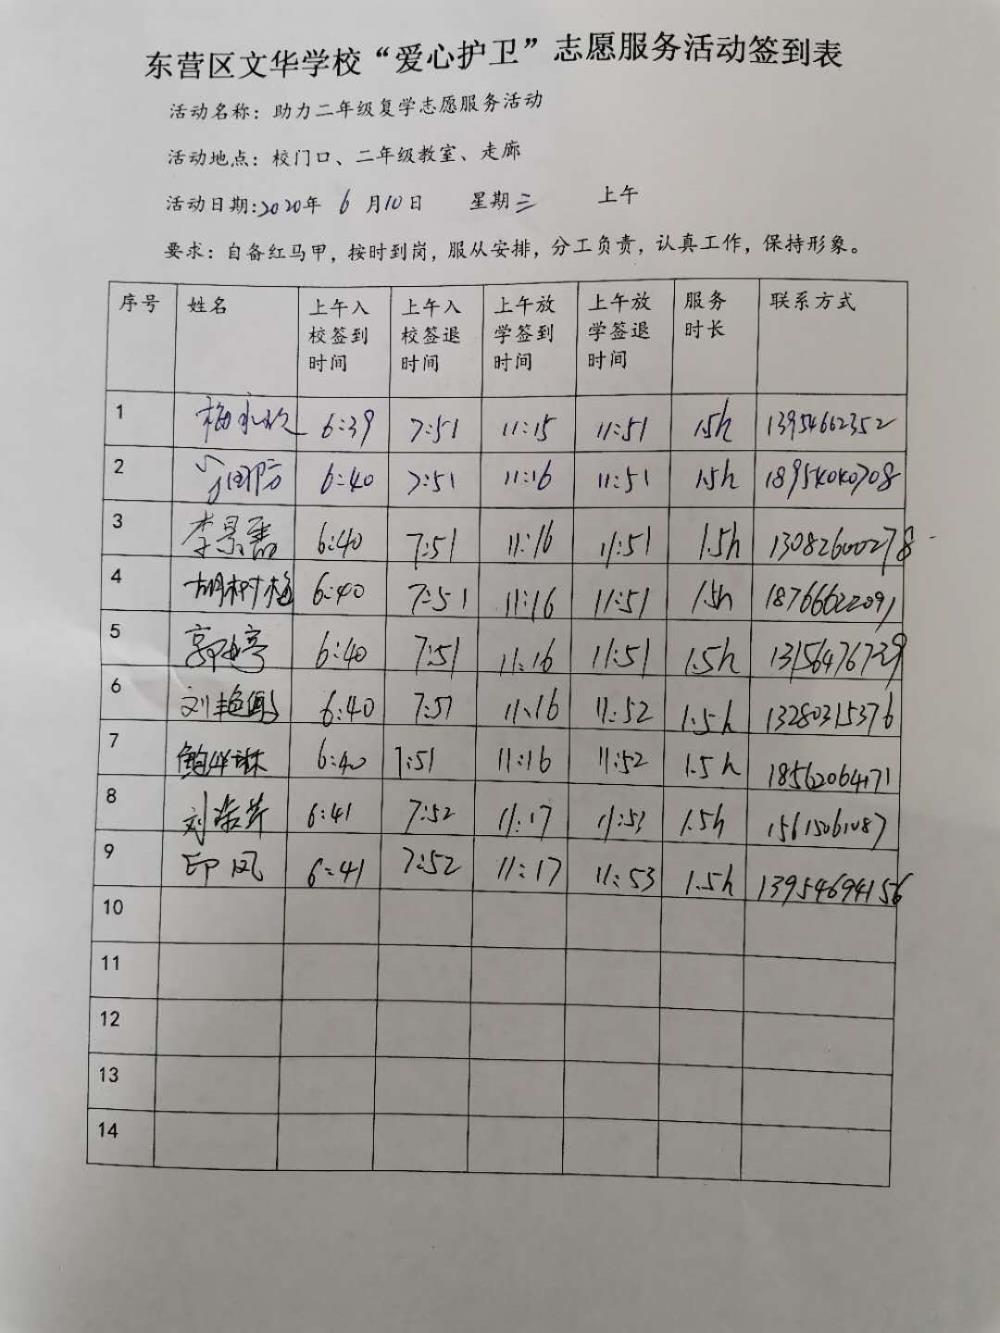 东营区文华学校“爱心护卫”志愿服务活动签到表
活动名称：助力二年级复学志愿服务活动
活动地点：校门口、二年级教室、走廊
活动日期:2020年 6月10日 星期三 上午
要求：自备红马甲，按时到岗，服从安排，分工负责，认真工作，保持形象。
序号 姓名 上午入校签到时间 上午入校签退时间 上午放学签到时间 上午放学签退时间 服务时长 联系方式
1 6:39 7:51 11:15 11:51 1.5h 13954662352
2 6:40 7:51 11:16 11:51 1.5h 18954040708
3 李景 6:40 7:51 11:16 11:51 1.5h 13082600278
4 胡树梅 6:40 7:51 11:16 11:51 1.5h 18766622091
5 郭 6:40 7:51 11:16 11:51 1.5h 13156476739
6 刘艳 6:40 7:51 11:16 11:52 1.5h 13280315376
7 鲍 琳 6:40 7:51 11:16 11:52 1.5h 18562064171
8 刘 6:41 7:52 11:17 11:53 1.5h 15615061087
9 印凤 6:41 7:52 11:17 11:53 1.5h 13954694156
10
11
12
13
14